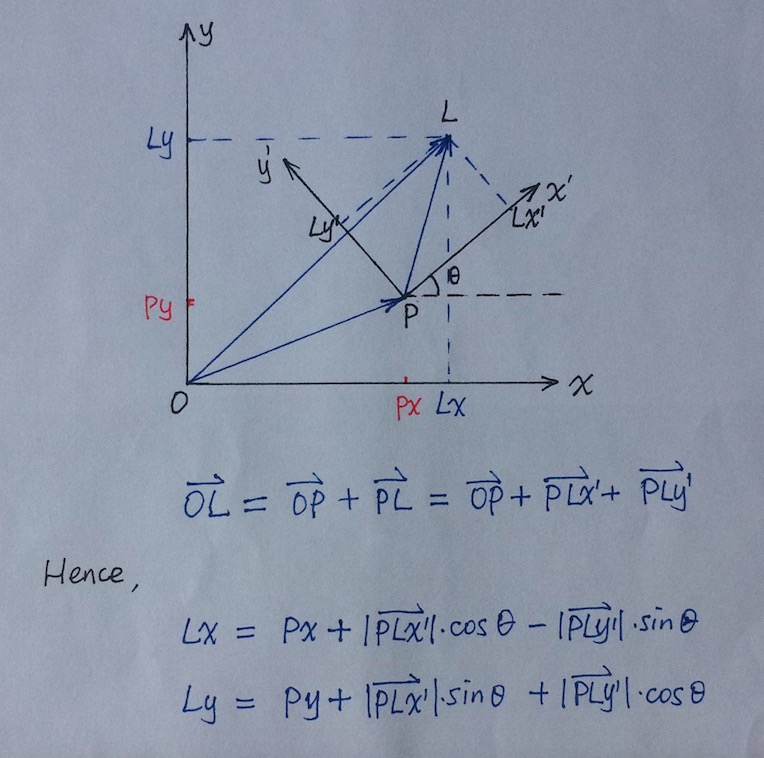 y
L
Ly
y'
x'
Lx'
Ly'
θ
Py
P
O
x
Px Lx
OL = OP + PL = OP + PLx' + PLy'
Hence,
Lx = Px + |PLx'|·cosθ − |PLy'|·sinθ
Ly = Py + |PLx'|·sinθ + |PLy'|·cosθ